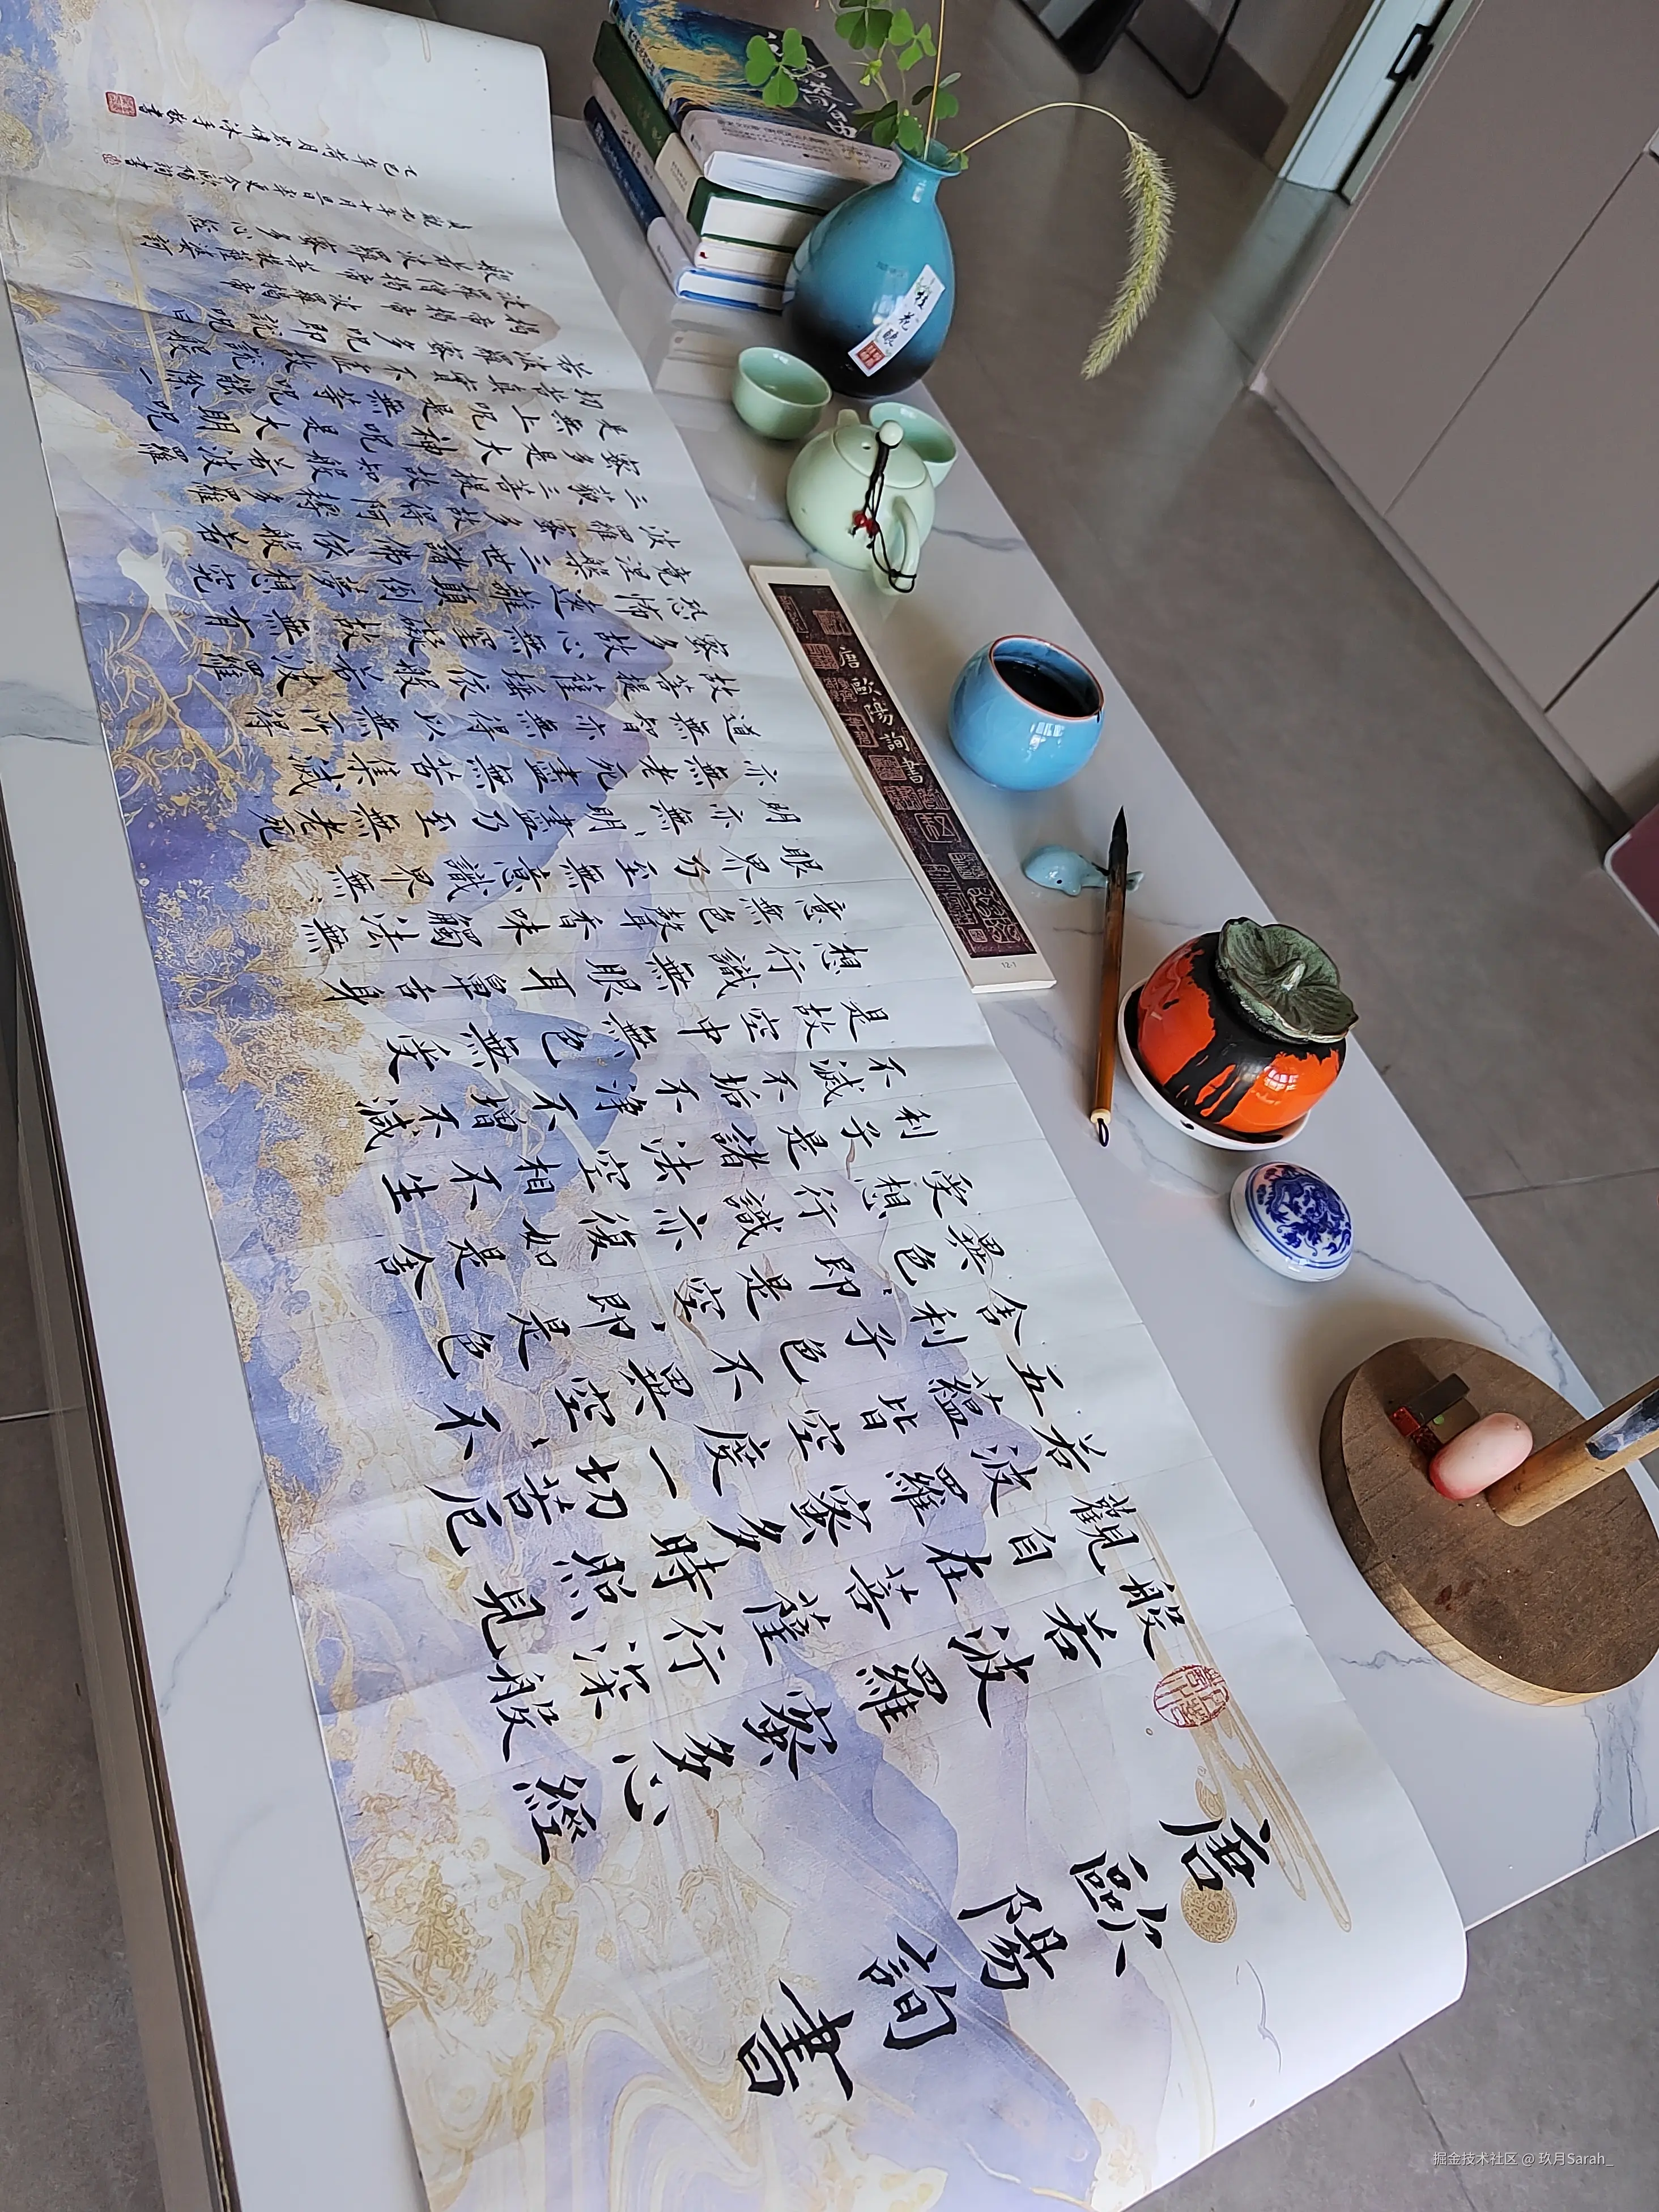 唐歐陽詢書
般若波羅蜜多心經
觀自在菩薩行深般
若波羅蜜多時照見
五蘊皆空度一切苦厄
舍利子色不異空、不
異色、即是空、即是色
受想行識亦復如是舍
利子是諸法空相不生
不滅不垢不淨不增不減
是故空中無色無受
想行識無眼耳鼻舌身
意無色聲香味觸法無
眼界乃至無意識界無、
明亦無、明盡乃至無老死
亦無老死盡無苦集滅
道無智亦無得以無所得
故菩提薩埵依般若波羅
蜜多故心無罣礙故無有
恐怖遠離顛倒夢想究
竟涅槃三世諸佛依般若
波羅蜜多故得阿耨多羅
三藐三菩提故知般若波羅
蜜多是大神呪是大明呪
是無上呪是無等等呪能除一
切苦真實不虛故說般
若波羅蜜多呪即說呪曰
揭帝揭帝 波羅揭帝
波羅僧揭帝 菩提薩婆訶
般若波羅蜜多心經
貞觀九年十月旦日率更令歐陽詢書
乙巳年荷月
唐歐陽詢書
12-1
桂花釀
掘金技术社区 @ 玖月Sarah_